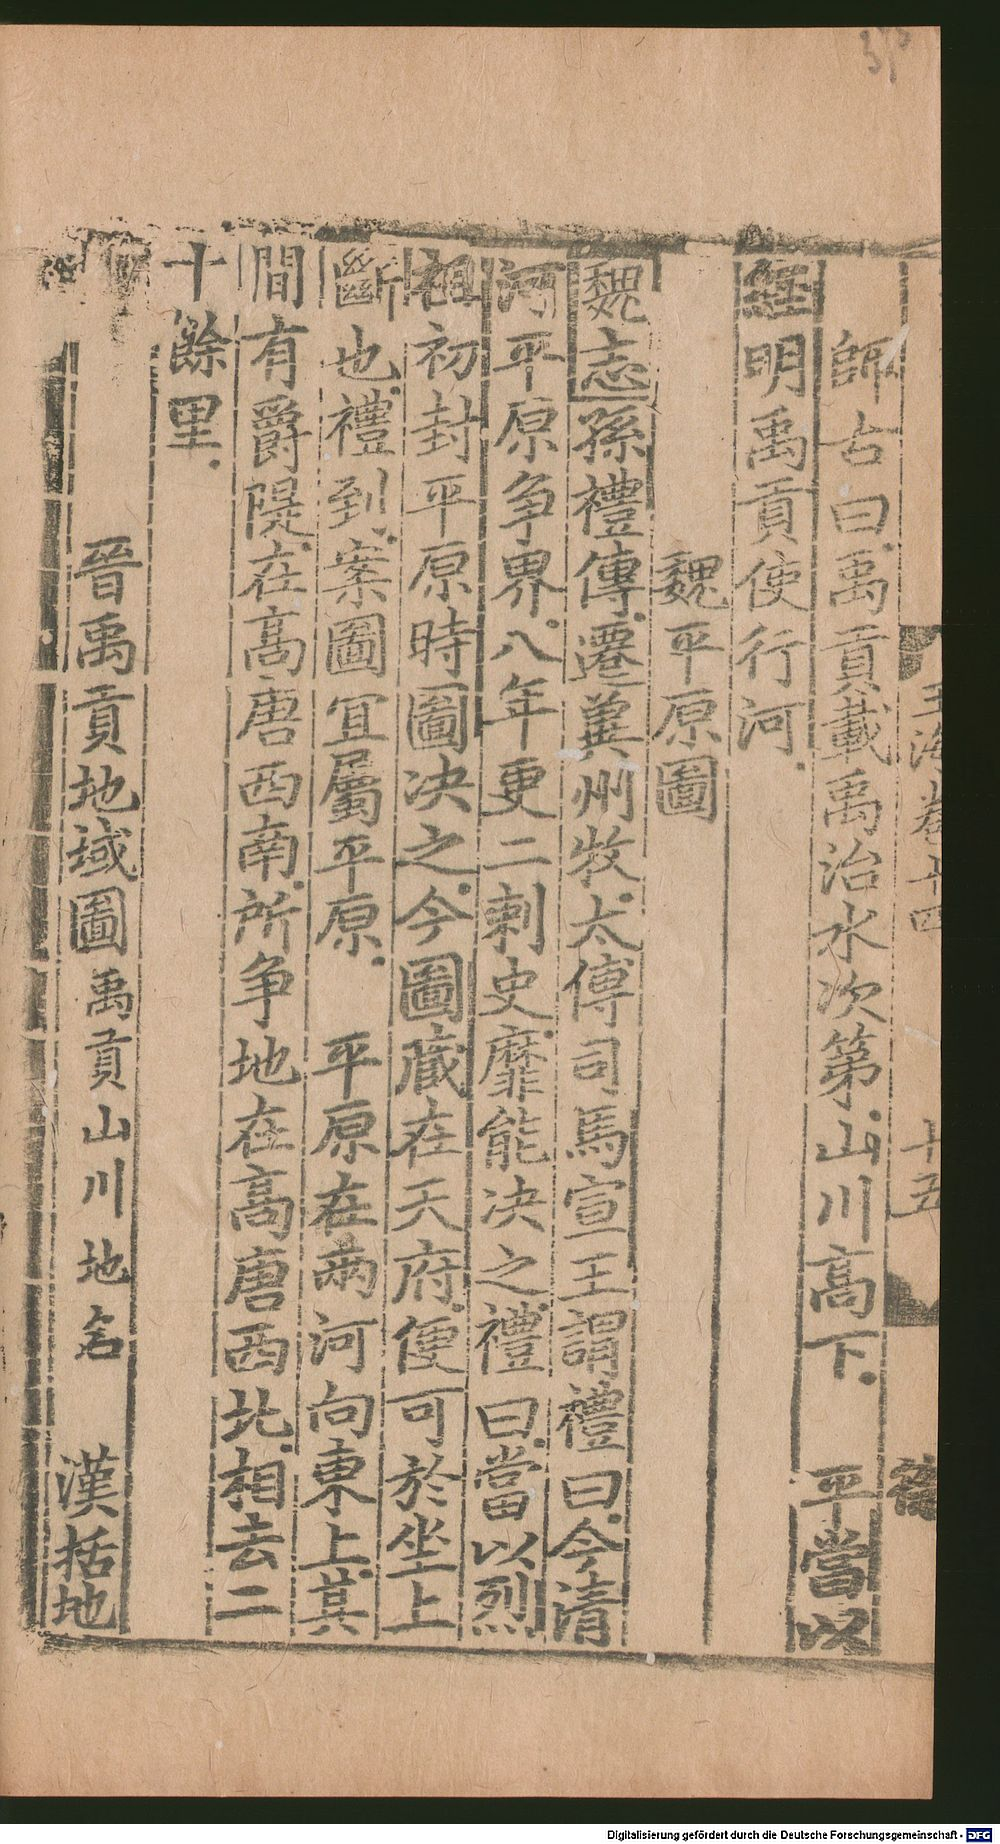 玉海卷十四
十五
師古曰禹貢載禹治水次第山川高下　平當以
經明禹貢使行河
魏平原圖
魏志孫禮傳遷冀州牧太傅司馬宣王謂禮曰今清
河平原争界八年更二刺史靡能决之禮曰當以烈
祖初封平原時圖决之今圖藏在天府便可於坐上
斷也禮到案圖宜屬平原　平原在兩河向東上其
間有爵隄在高唐西南所争地在高唐西北相去二
十餘里
晉禹貢地域圖 禹貢山川地名　漢括地
Digitalisierung gefördert durch die Deutsche Forschungsgemeinschaft - DFG